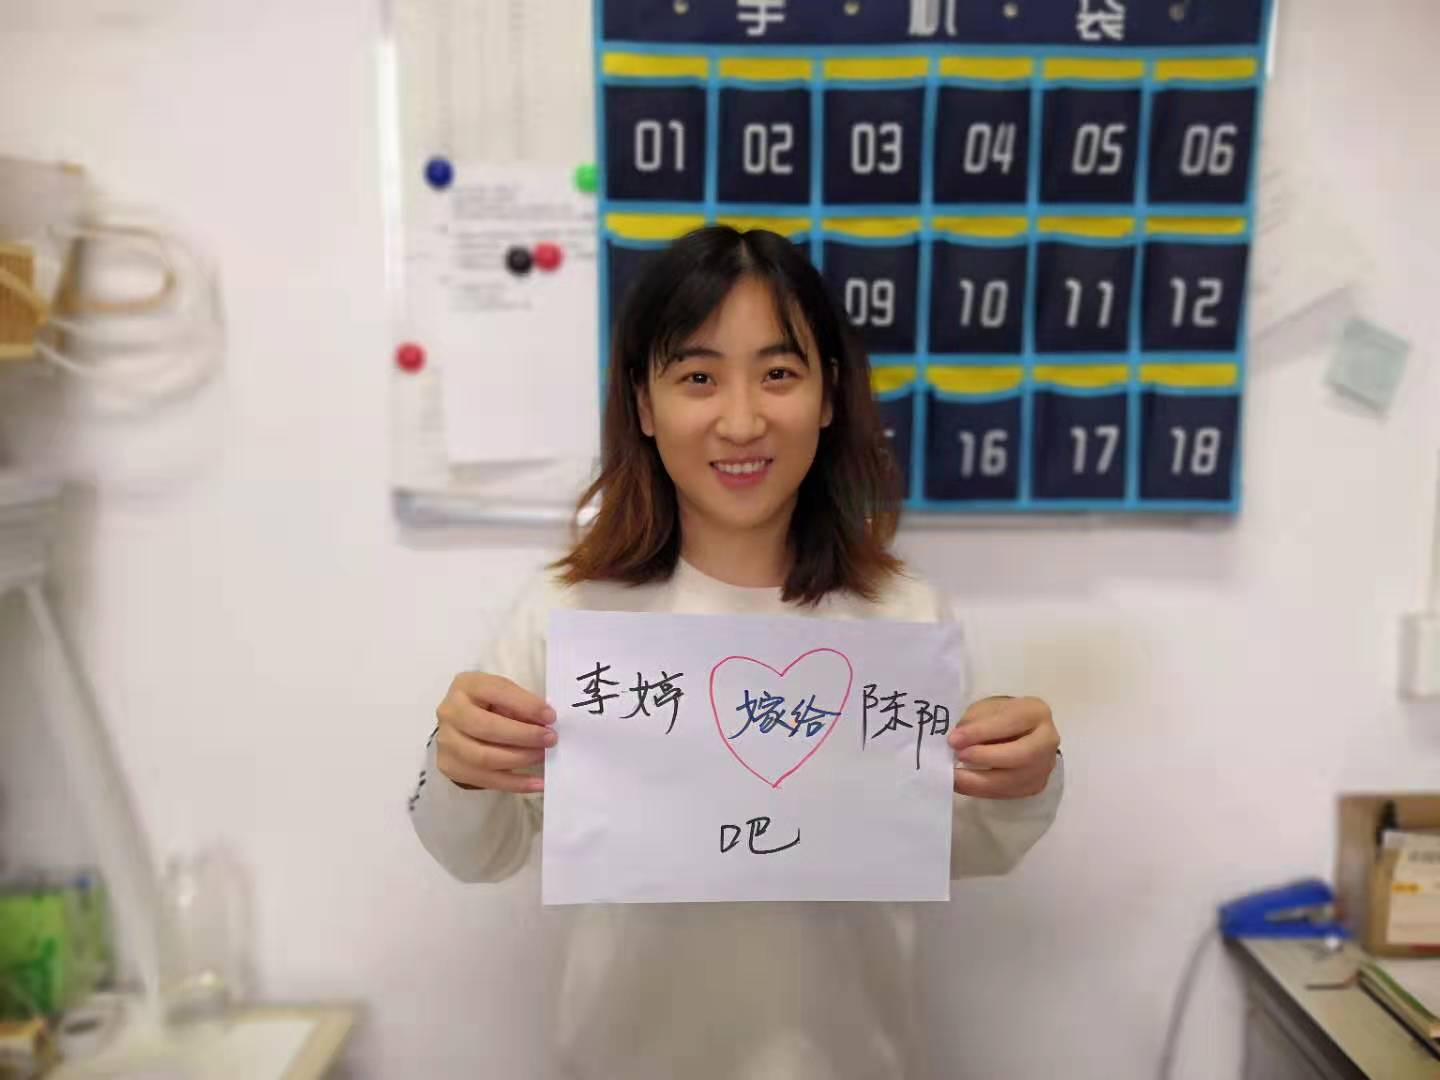 手机袋
01 02 03 04 05 06
09 10 11 12
16 17 18
李婷 嫁给 陈阳
吧